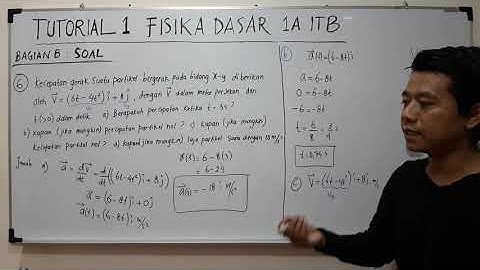 TUTORIAL 1 FISIKA DASAR 1A ITB
BAGIAN B : SOAL
6) Kecepatan gerak suatu partikel bergerak pada bidang x-y diberikan
oleh V⃗ = (6t - 4t²) î + 8 ĵ, dengan V⃗ dalam meter persekon dan
t(>0) dalam detik. a) Berapakah percepatan ketika t = 3s ?
b) kapan (jika mungkin) percepatan partikel nol? c) kapan (jika mungkin)
kecepatan partikel nol? d) kapan (jika mungkin) laju partikel sama dengan 10 m/s ?
Jawab a) a⃗ = dv⃗/dt = d/dt ((6t - 4t²) î + 8 ĵ)
a⃗ = (6 - 8t) î + 0 ĵ
a⃗(t) = (6 - 8t) î m/s²
a⃗(3) = 6 - 8(3)
= 6 - 24
a⃗(3) = -18 î m/s²
b) a⃗(t) = (6 - 8t) î
a = 6 - 8t
0 = 6 - 8t
t = 6/8 = 3/4
t = 0,75 s
c) V⃗ = (6t - 4t²) î + 8 ĵ